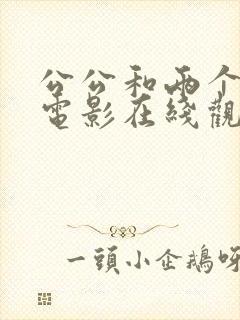 公公和兩个
電影在綫觀
一頭小企鵝呀